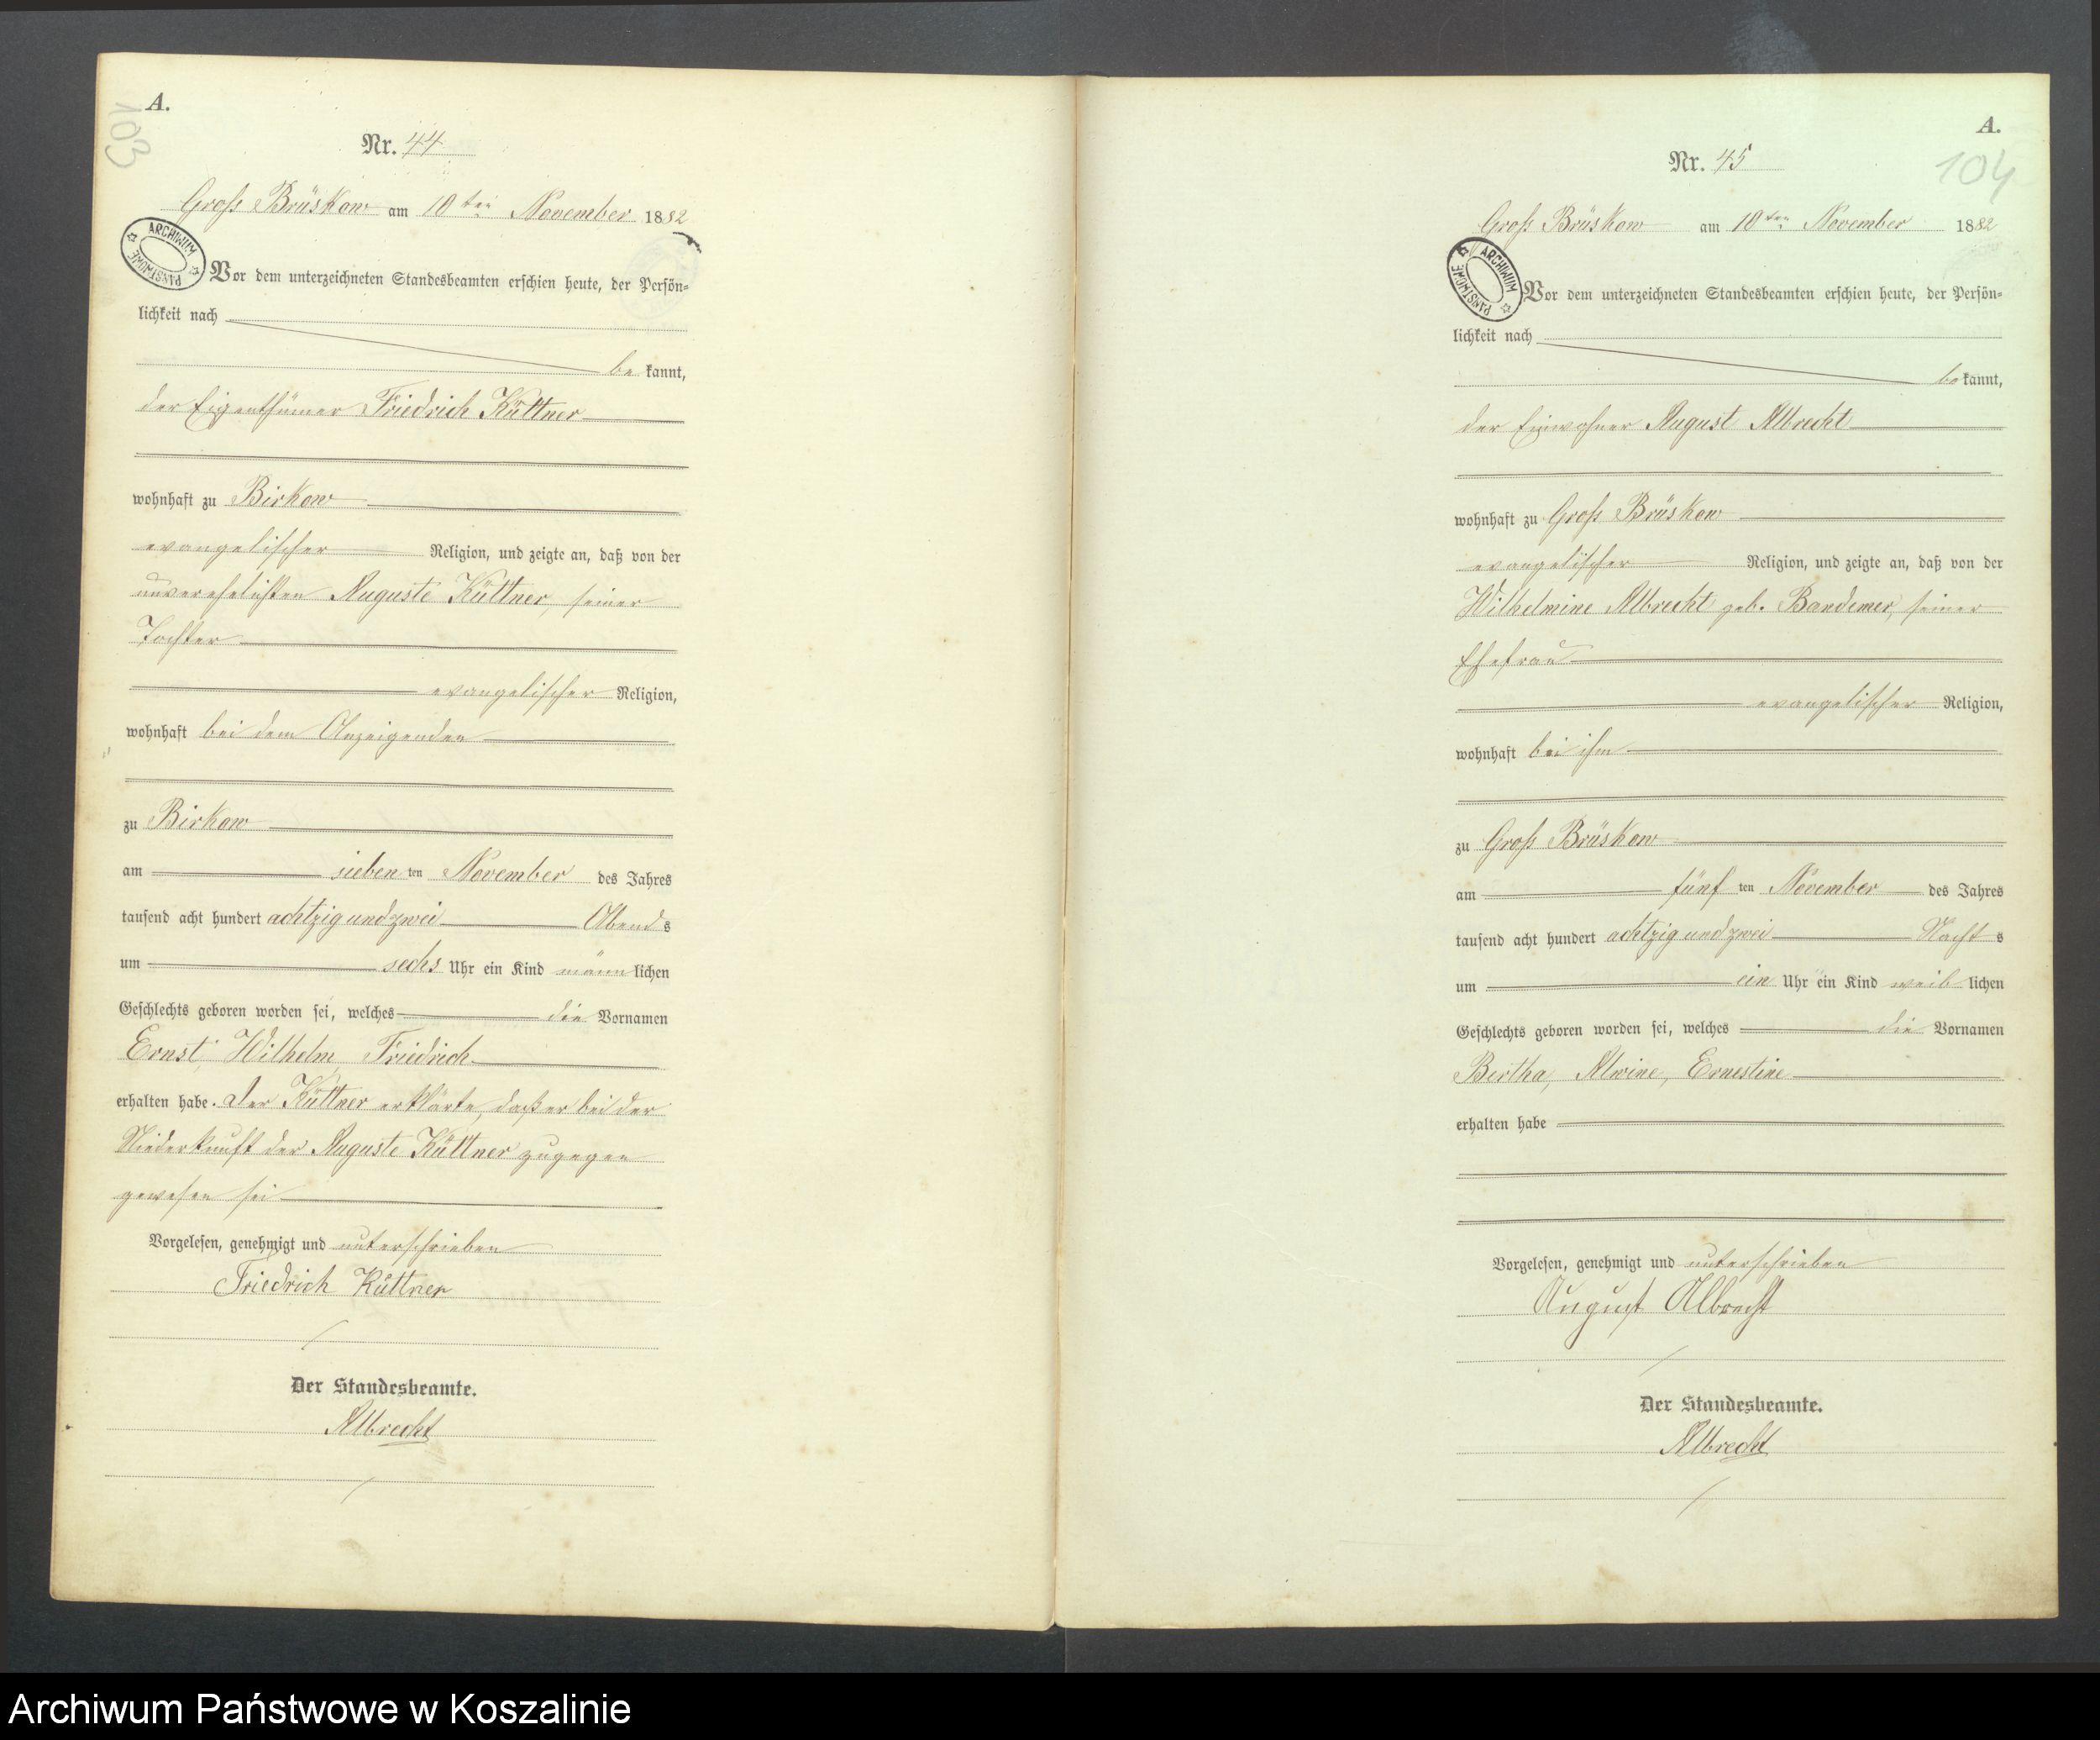 A.
103
Nr. 44
Groß Brüskow am 10ten November 1882
ARCHIWUM PAŃSTWOWE
Vor dem unterzeichneten Standesbeamten erschien heute, der Persön-
lichkeit nach
be kannt,
der Eigenthümer Friedrich Küttner
wohnhaft zu Birkow
evangelischer Religion, und zeigte an, daß von der
unverehelichten Auguste Küttner, seiner
Tochter
evangelischer Religion,
wohnhaft bei dem Anzeigenden
zu Birkow
am sieben ten November des Jahres
tausend acht hundert achtzig und zwei Abend s
um sechs Uhr ein Kind männ lichen
Geschlechts geboren worden sei, welches die Vornamen
Ernst, Wilhelm, Friedrich
erhalten habe. Der Küttner erklärte, daß er bei der
Niederkunft der Auguste Küttner zugegen
gewesen sei
Vorgelesen, genehmigt und unterschrieben
Friedrich Küttner
Der Standesbeamte.
Albrecht
A.
104
Nr. 45
Groß Brüskow am 10ten November 1882
ARCHIWUM PAŃSTWOWE
Vor dem unterzeichneten Standesbeamten erschien heute, der Persön-
lichkeit nach
be kannt,
der Einwohner August Albrecht
wohnhaft zu Groß Brüskow
evangelischer Religion, und zeigte an, daß von der
Wilhelmine Albrecht geb. Bandemer, seiner
Ehefrau
evangelischer Religion,
wohnhaft bei ihm
zu Groß Brüskow
am fünf ten November des Jahres
tausend acht hundert achtzig und zwei Nacht s
um ein Uhr ein Kind weib lichen
Geschlechts geboren worden sei, welches die Vornamen
Bertha, Alwine, Ernestine
erhalten habe
Vorgelesen, genehmigt und unterschrieben
August Albrecht
Der Standesbeamte.
Albrecht
Archiwum Państwowe w Koszalinie